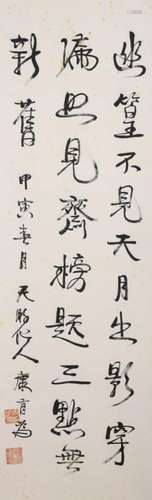 幽篁不見天月出影穿
漏忽見齋榜題三點無
新舊
甲寅春月天游化人康有為